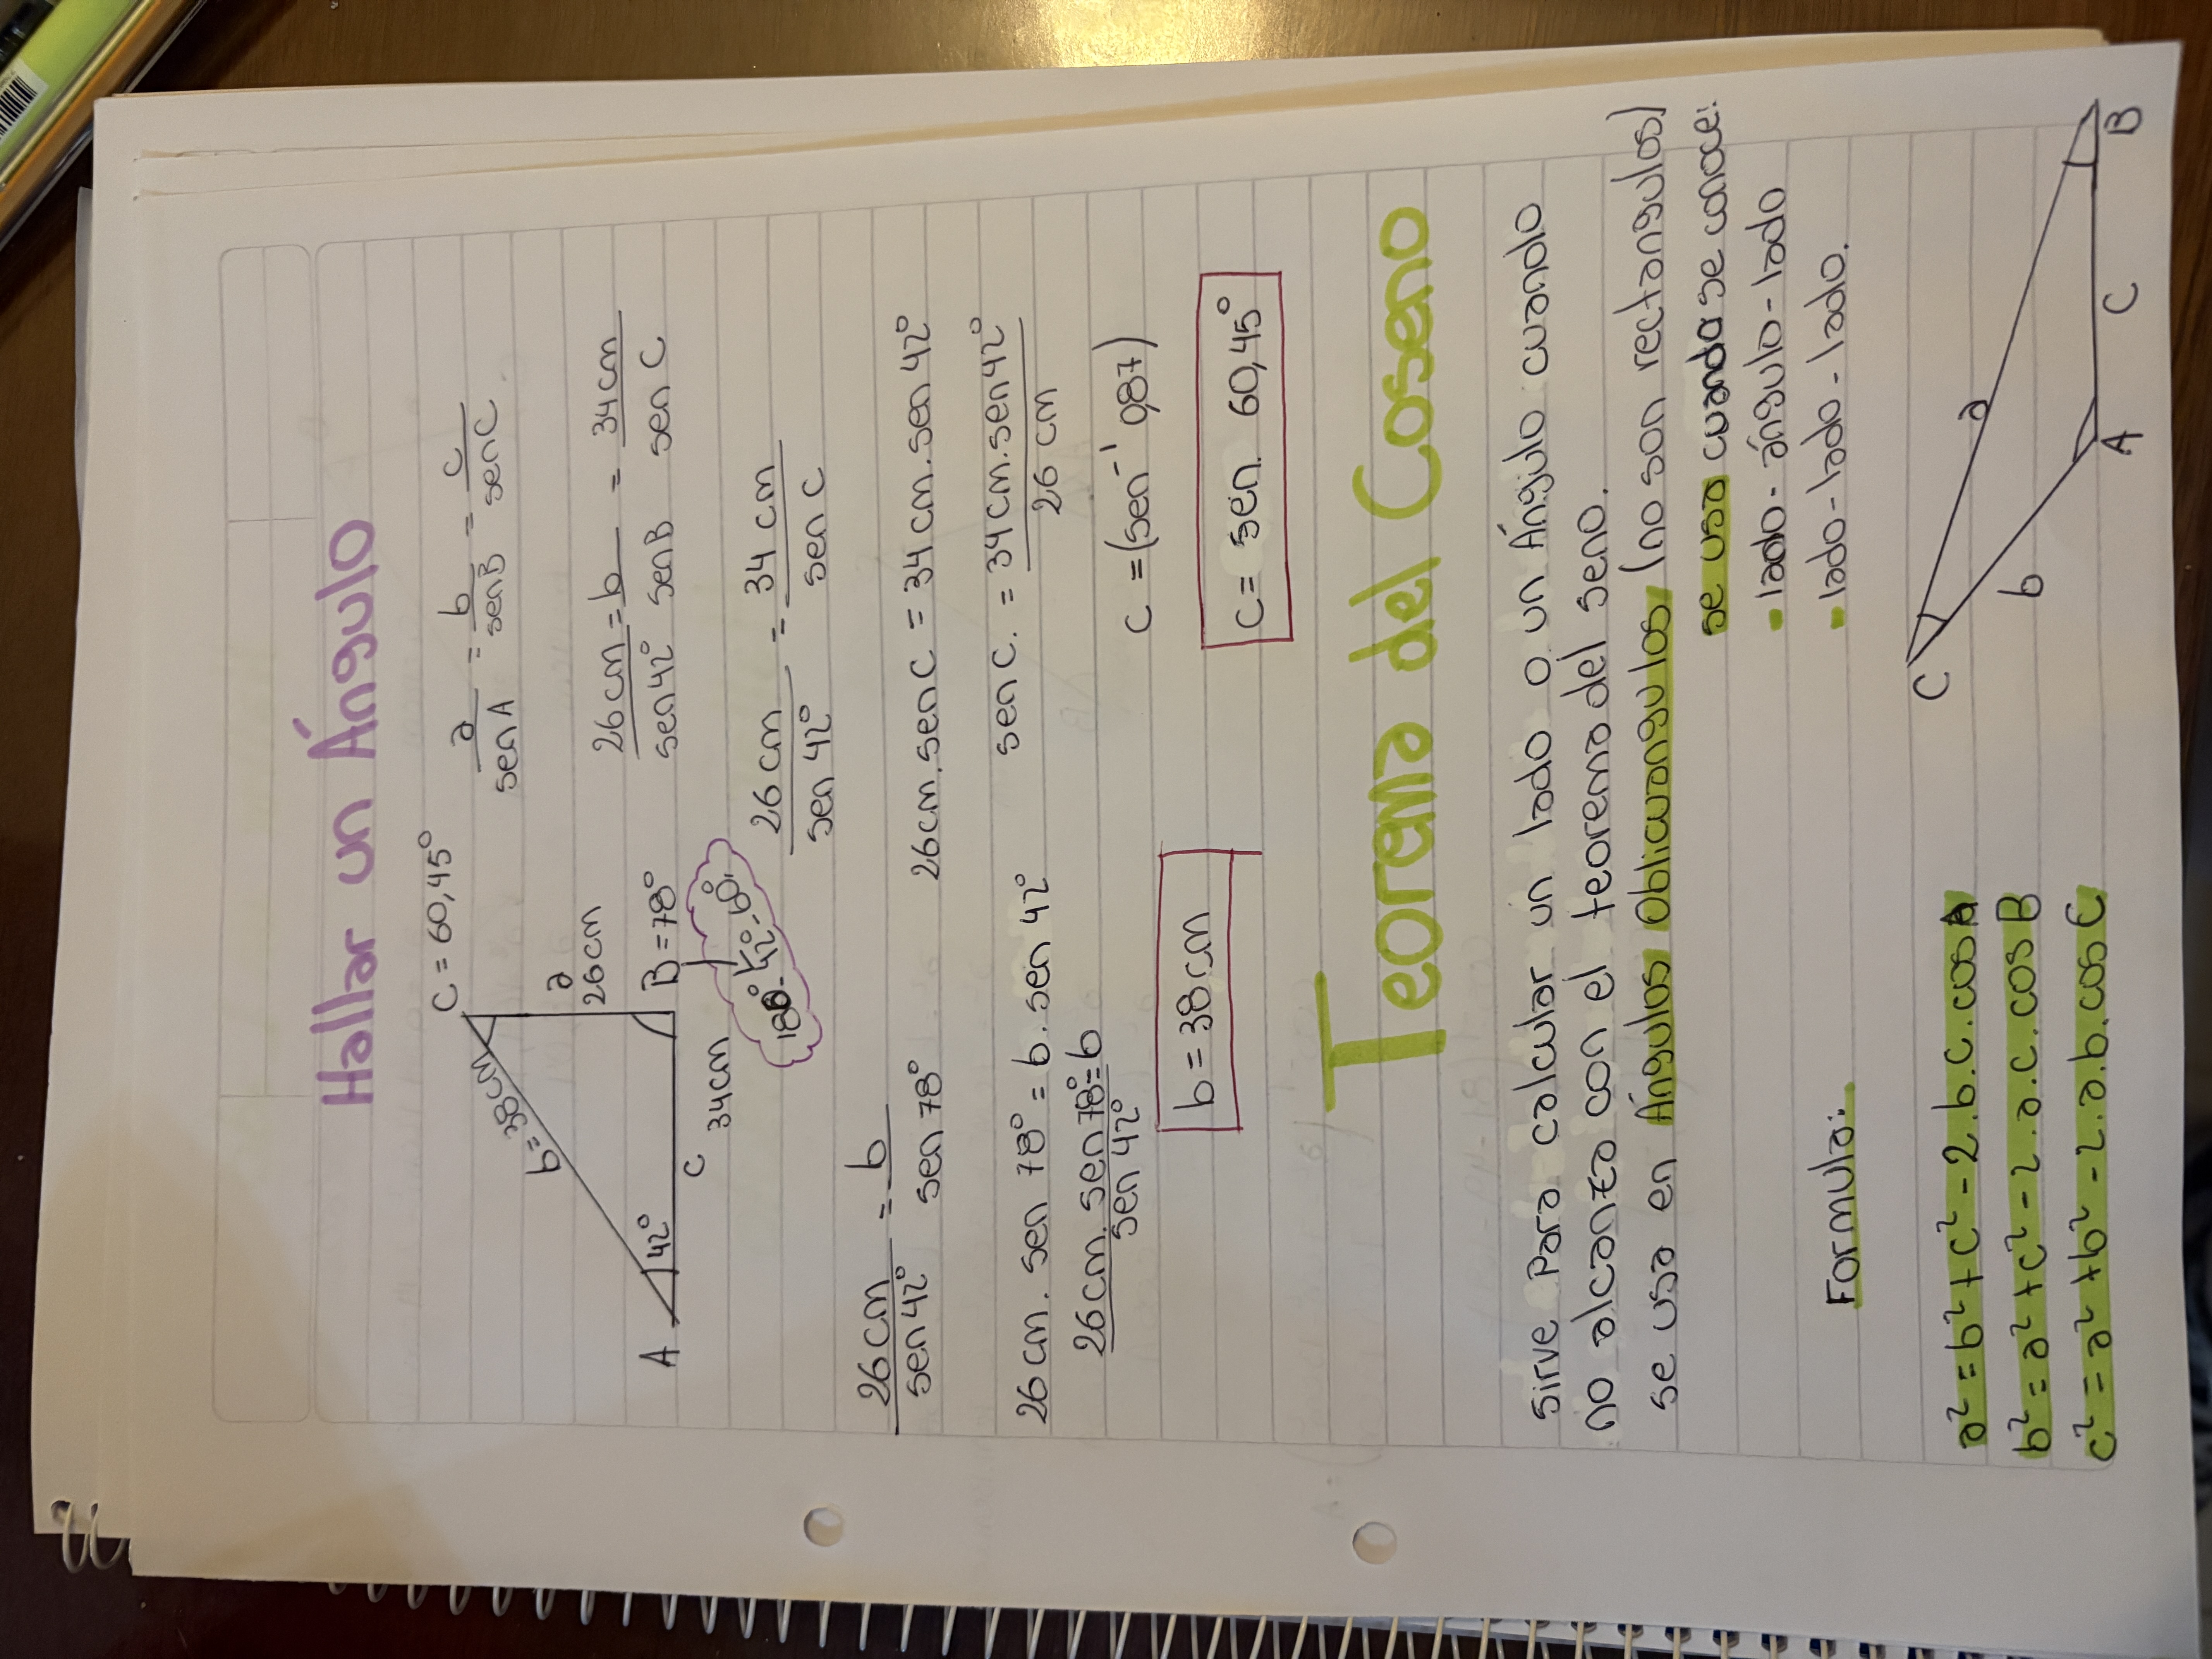 Hallar un Ángulo
C = 60,45°
b = 38cm
a
26cm
A
42°
B = 78°
c
34cm
180° - 42° - 60°
a/sen A = b/sen B = c/sen C.
26cm/sen 42° = b/sen B = 34cm/sen C
26 cm/sen 42° = 34 cm/sen C
26cm.sen C = 34 cm. sen 42°
sen C. = 34 cm. sen 42°/26 cm
C = (sen⁻¹ 0,87)
C = sen. 60,45°
26 cm/sen 42° = b/sen 78°
26 cm. sen 78° = b. sen 42°
26 cm. sen 78°/sen 42° = b
b = 38 cm
Teorema del Coseno
sirve para calcular un lado o un Ángulo cuando
no alcanza con el teorema del seno.
se usa en Ángulos Oblicuangulos (no son rectangulos)
se usa cuando se conoce:
- lado - ángulo - lado
- lado - lado - lado.
Formula:
a² = b² + c² - 2.b.c.cos A
b² = a² + c² - 2.a.c.cos B
c² = a² + b² - 2.a.b.cos C
C
a
b
A
C
B